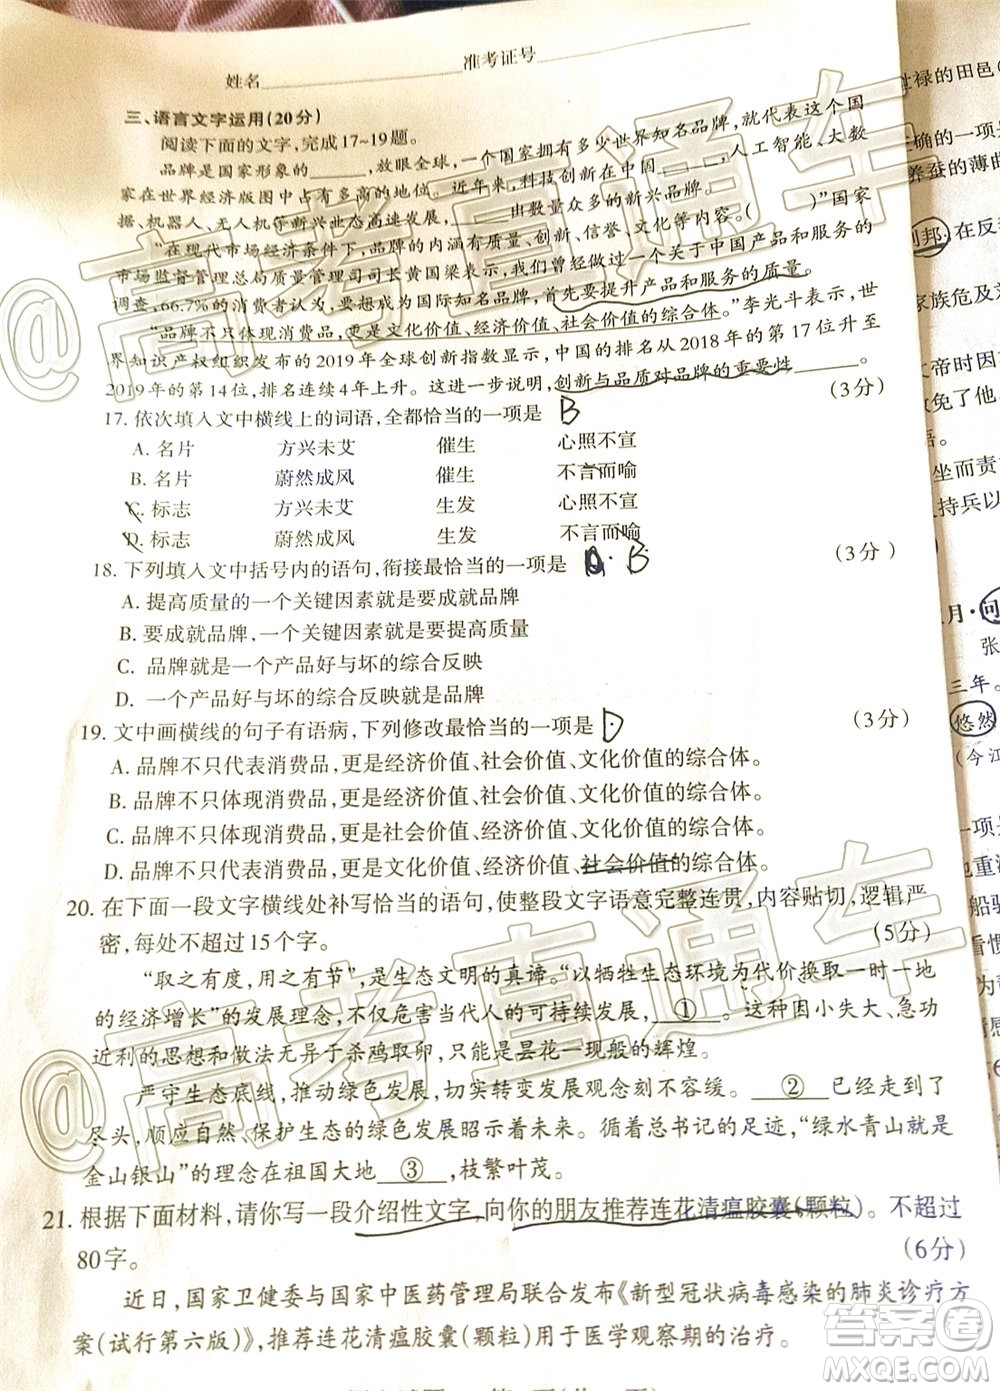 姓名________准考证号________
三、语言文字运用(20分)
阅读下面的文字,完成17~19题。
品牌是国家形象的______,放眼全球,一个国家拥有多少世界知名品牌,就代表这个国
家在世界经济版图中占有多高的地位。近年来,科技创新在中国______,人工智能、大数
据、机器人、无人机等新兴业态高速发展,______出数量众多的新兴品牌。
“在现代市场经济条件下,品牌的内涵有创新、信誉、文化等内容。(      )”国家
市场监督管理总局质量管理司司长黄国梁表示,“我们曾经做过一个关于中国产品和服务的
调查,66.7%的消费者认为,要成为国际知名品牌,首先要提升产品和服务的质量。
“品牌不只体现消费品,更是文化价值、经济价值、社会价值的综合体。”李光斗表示,世
界知识产权组织发布的2019年全球创新指数显示,中国的排名从2018年的第17位升至
2019年的第14位,排名连续4年上升。这进一步说明,创新与品质对品牌的重要性______。
17.依次填入文中横线上的词语,全都恰当的一项是 B (3分)
A.名片 方兴未艾 催生 心照不宣
B.名片 蔚然成风 催生 不言而喻
C.标志 方兴未艾 生发 心照不宣
D.标志 蔚然成风 生发 不言而喻
18.下列填入文中括号内的语句,衔接最恰当的一项是 B (3分)
A.提高质量的一个关键因素就是要成就品牌
B.要成就品牌,一个关键因素就是要提高质量
C.品牌就是一个产品好与坏的综合反映
D.一个产品好与坏的综合反映就是品牌
19.文中画横线的句子有语病,下列修改最恰当的一项是 D (3分)
A.品牌不只代表消费品,更是经济价值、社会价值、文化价值的综合体。
B.品牌不只体现消费品,更是经济价值、社会价值、文化价值的综合体。
C.品牌不只体现消费品,更是社会价值、经济价值、文化价值的综合体。
D.品牌不只代表消费品,更是文化价值、经济价值、社会价值的综合体。
20.在下面一段文字横线处补写恰当的语句,使整段文字语意完整连贯,内容贴切,逻辑严
密,每处不超过15个字。 (5分)
“取之有度,用之有节”,是生态文明的真谛。“以牺牲生态环境为代价换取一时一地
的经济增长”的发展理念,不仅危害当代人的可持续发展,__①__。这种因小失大、急功
近利的思想和做法无异于杀鸡取卵,只能是昙花一现般的辉煌。
严守生态底线,推动绿色发展,切实转变发展理念刻不容缓。__②__已经走到了
尽头,顺应自然、保护生态的绿色发展昭示着未来。循着总书记的足迹,“绿水青山就是
金山银山”的理念在祖国大地__③__,枝繁叶茂。
21.根据下面材料,请你写一段介绍性文字,向你的朋友推荐连花清瘟胶囊(颗粒)。不超过
80字。 (6分)
近日,国家卫健委与国家中医药管理局联合发布《新型冠状病毒感染的肺炎诊疗方
案(试行第六版)》,推荐连花清瘟胶囊(颗粒)用于医学观察期的治疗。
禄的田邑
确的一项
养蚕的薄曲
在反
家族危及
帝时因
免了他
坐而责
持兵以
月·问
张
三年。
悠然
(今江
一项是
地重
船
看惯
为
感
@高考直通车
@高考直通车
答案圈
MXQE.COM